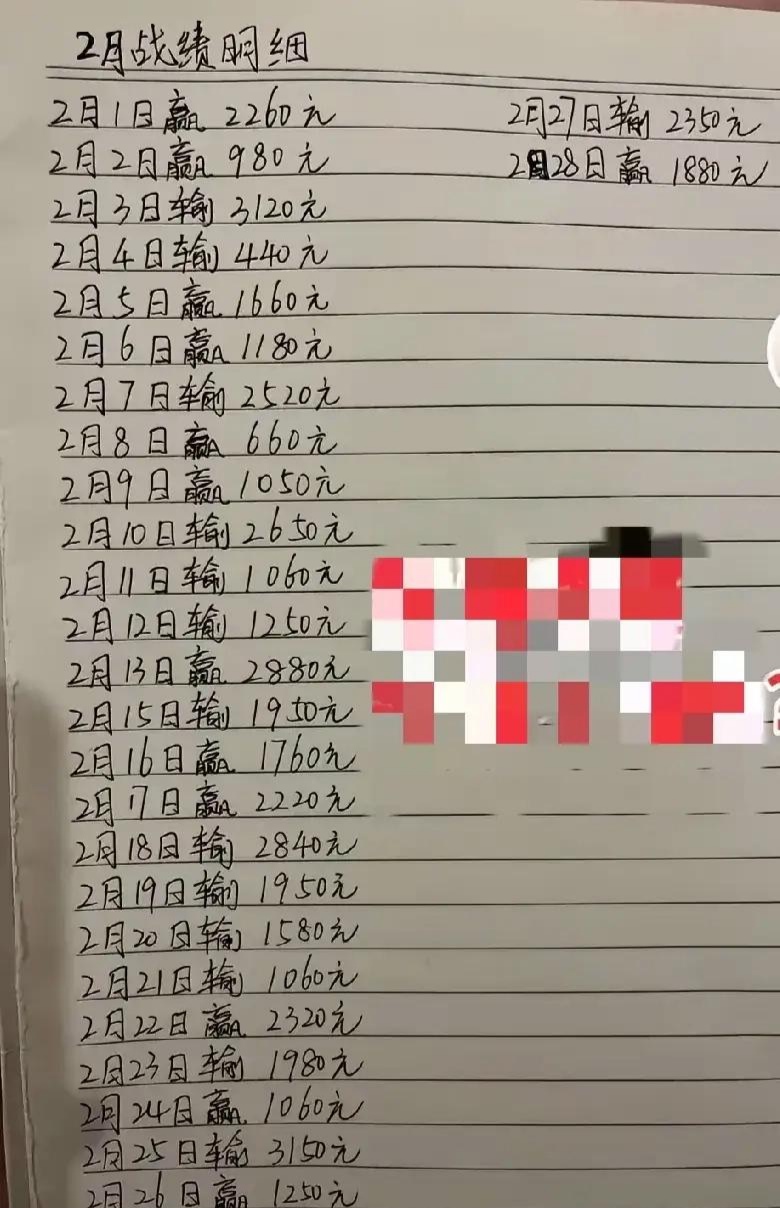 2月战绩明细
2月1日赢 2260元
2月2日赢 980元
2月3日输 3120元
2月4日输 440元
2月5日赢 1660元
2月6日赢 1180元
2月7日输 2520元
2月8日赢 660元
2月9日赢 1050元
2月10日输 2650元
2月11日输 1060元
2月12日输 1250元
2月13日赢 2880元
2月15日输 1950元
2月16日赢 1760元
2月17日赢 2220元
2月18日输 2840元
2月19日输 1950元
2月20日输 1580元
2月21日输 1060元
2月22日赢 2320元
2月23日输 1980元
2月24日赢 1060元
2月25日输 3150元
2月26日赢 1250元
2月27日输 2350元
2月28日赢 1880元